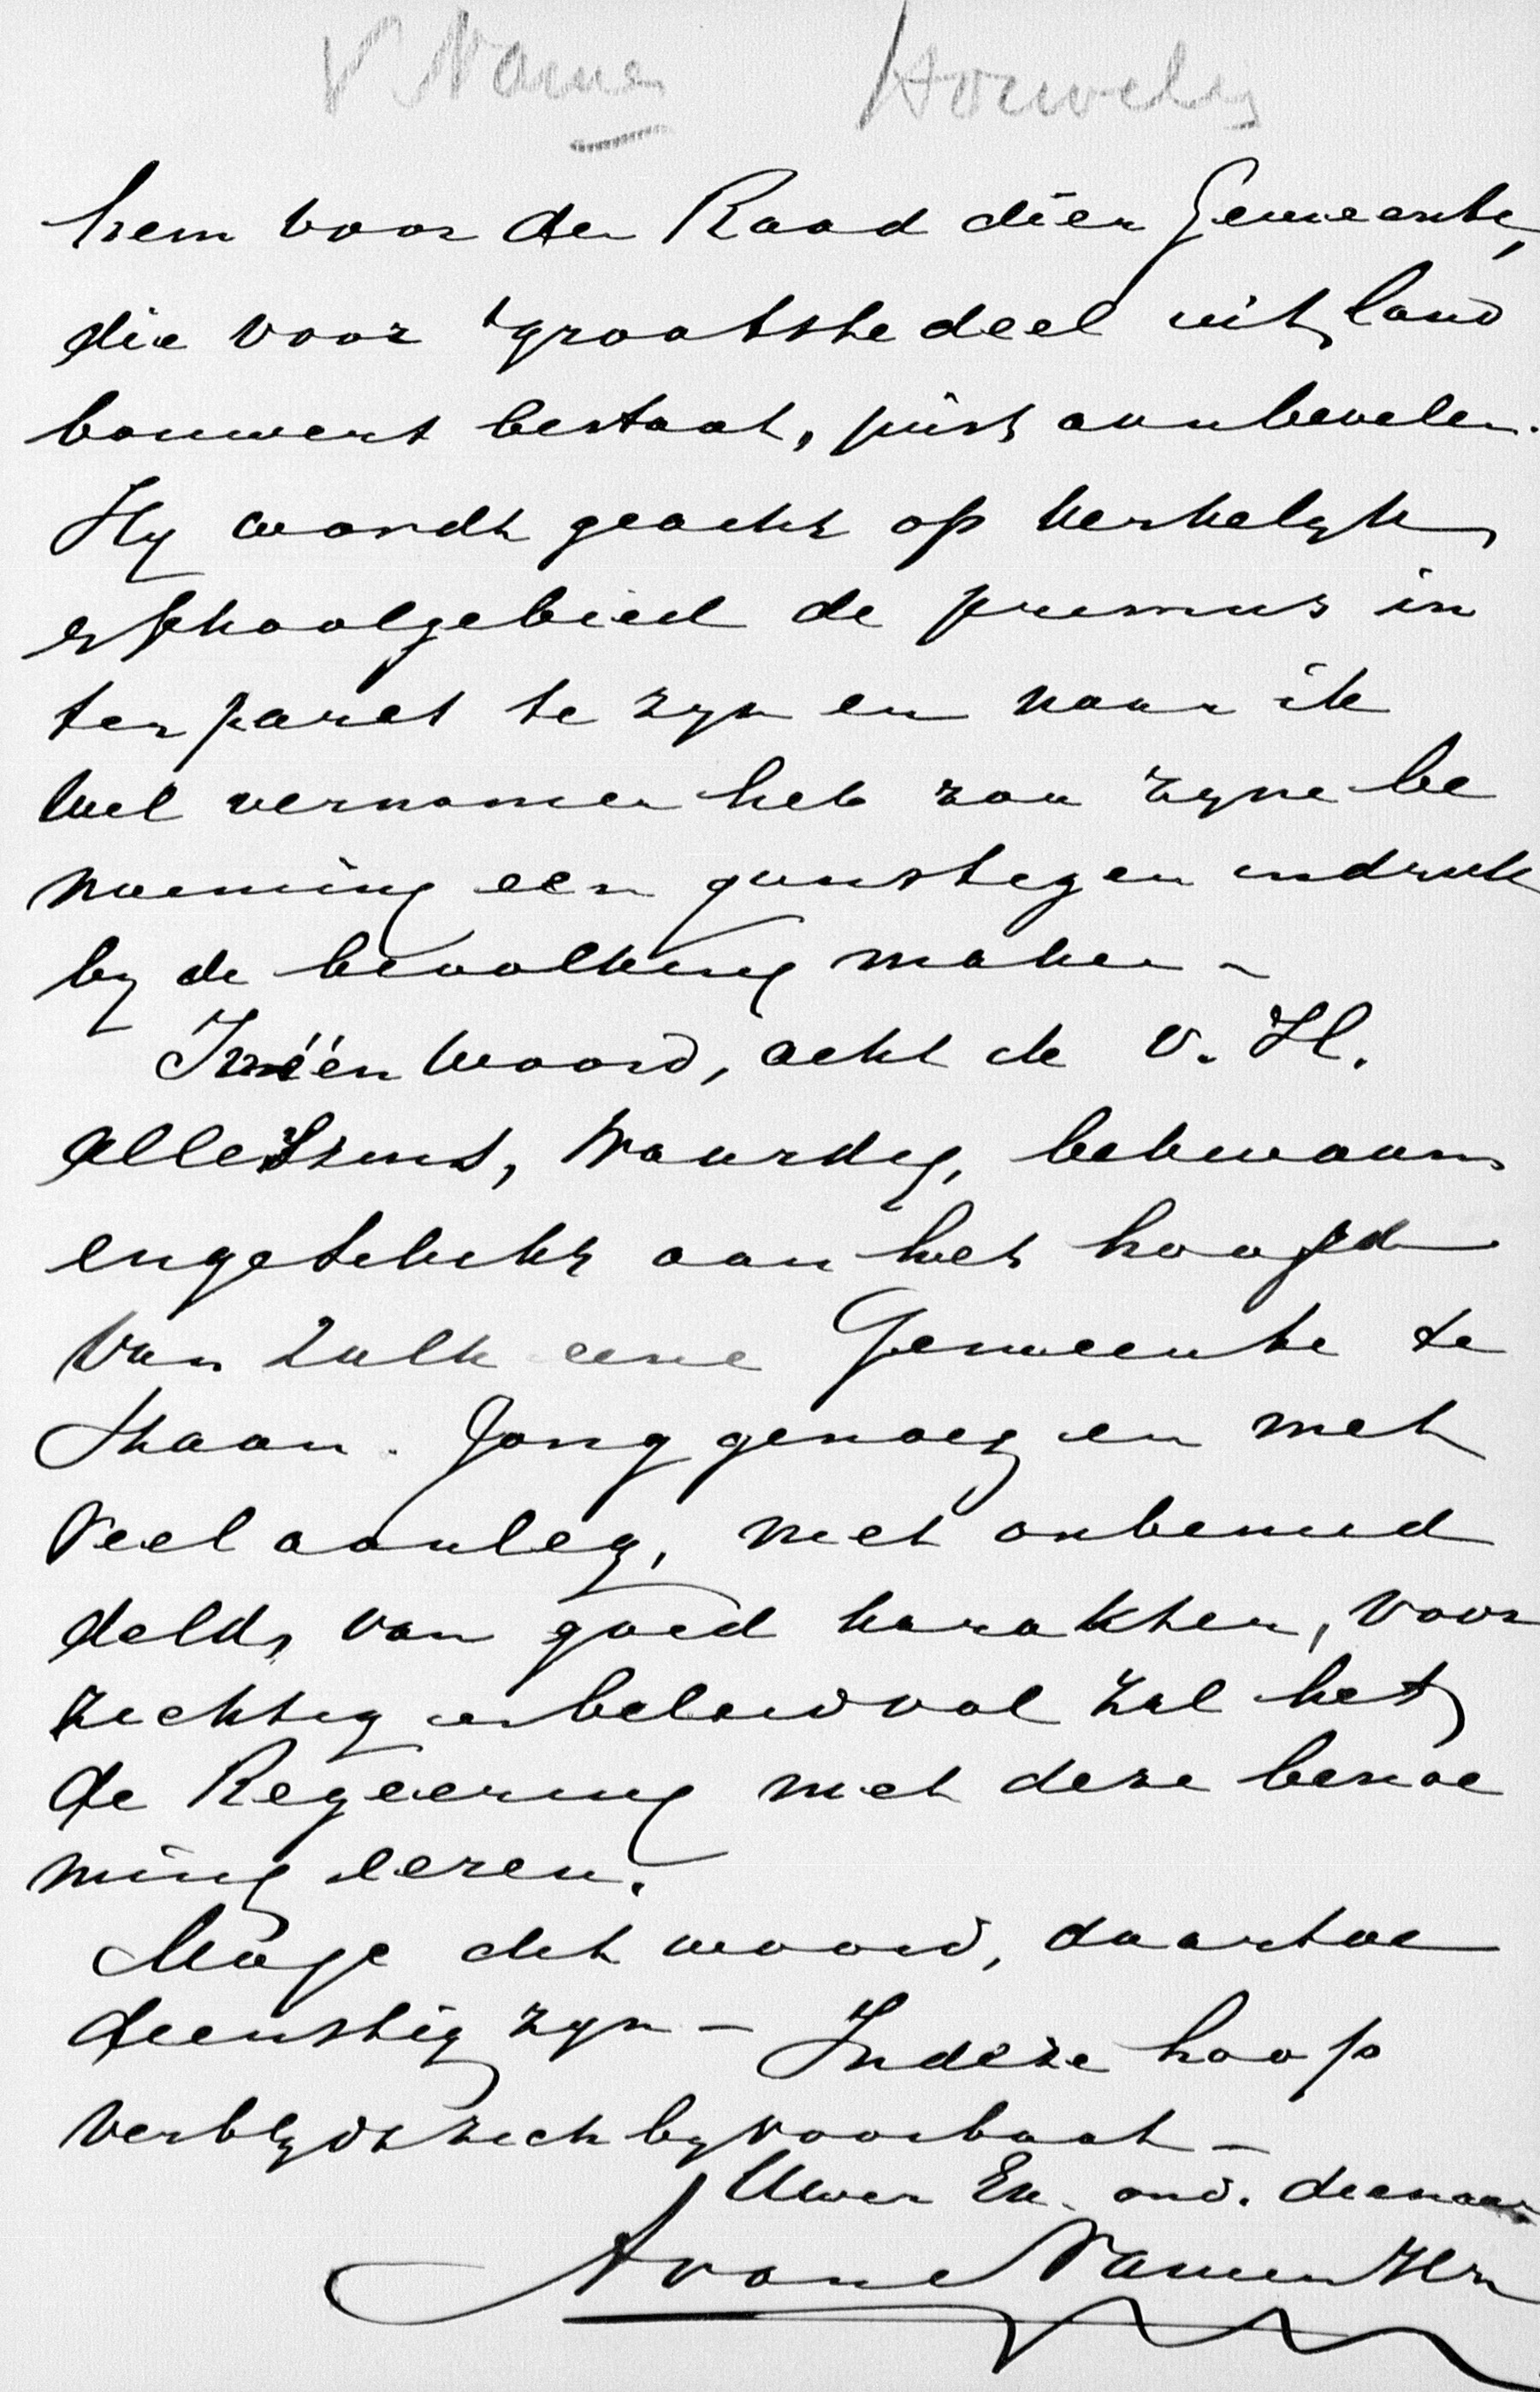 V Name Houwely
hem voor den Raad dier Gemeente,
die voor 't grootste deel uit land
bouwers bestaat, juist aanbevelen.
Hy wordt geacht op kerkelyk
& schoolgebied de primus in
ter pares te zyn en naar ik
wel vernomen heb zou zyne be
noeming een gunstigen indruk
by de bevolking maken -
In één woord, acht de v. H.
alleszins, waardig, bekwaam
en geschikt aan het hoofd
van zulk eene Gemeente te
staan. Jong genoeg en met
veel aanleg, niet onbemid
deld, van goed karakter, voor
zichtig en beleidvol zal het
de Regeering met deze benoe
ming eeren.
Moge dit woord, daartoe
dienstig zyn - In deze hoop
verblydt zich by voorbaat -
Uwer Ex. ond. dienaar
A van Namen Hzn